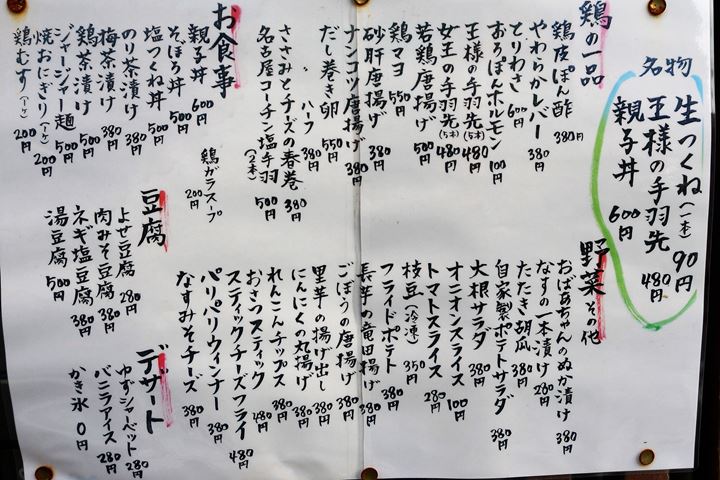 名物
生つくね(一本) 90円
王様の手羽先 480円
親子丼 600円
鶏の一品
鶏皮ぽん酢 380円
やわらかレバー 380円
とりわさ 600円
おろぽんホルモン 100円
王様の手羽先(5本) 480円
女王の手羽先(5本) 480円
若鶏唐揚げ 500円
鶏マヨ 550円
砂肝唐揚げ 380円
ナンコツ唐揚げ 380円
だし巻き卵 550円
ハーフ 380円
ささみとチーズの春巻 380円
名古屋コーチン塩手羽(2本) 500円
お食事
親子丼 600円
そぼろ丼 500円
塩つくね丼 500円
のり茶漬け 380円
梅茶漬け 380円
鶏茶漬け 500円
ジャージャー麺 500円
焼おにぎり(1ケ) 200円
鶏むす(1ケ) 200円
鶏ガラスープ 200円
野菜その他
おばあちゃんのぬか漬け 380円
なすの一本漬け 280円
たたき胡瓜 380円
自家製ポテトサラダ 380円
大根サラダ 380円
オニオンスライス 100円
トマトスライス 280円
枝豆(冷凍) 350円
フライドポテト 380円
長芋の竜田揚げ 380円
ごぼうの唐揚げ 380円
里芋の揚げ出し 380円
にんにくの丸揚げ 380円
れんこんチップス 380円
おさつスティック 480円
スティックチーズフライ 480円
パリパリウィンナー 380円
なすみそチーズ 380円
豆腐
よせ豆腐 280円
肉みそ豆腐 380円
ネギ塩豆腐 380円
湯豆腐 500円
デザート
ゆずシャーベット 280円
バニラアイス 280円
かき氷 0円